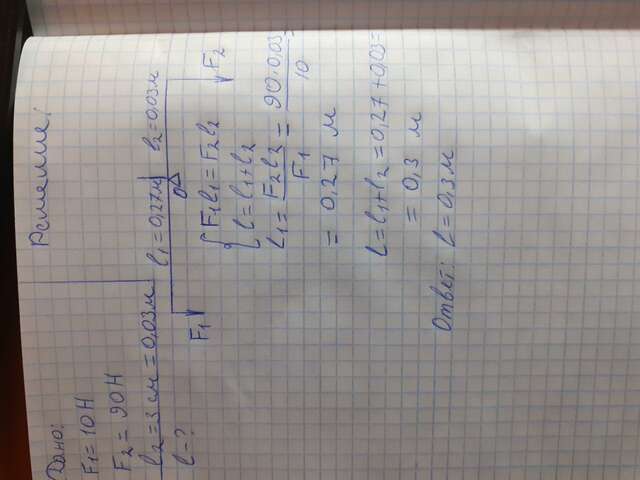 Дано:
F1 = 10Н
F2 = 90Н
l2 = 3 см = 0,03м
l = ?
Решение:
l1 = 0,27м l2 = 0,03м
O
F1 F2
F1l1 = F2l2
l = l1 + l2
l1 = F2l2 / F1 = 90 · 0,03 / 10 =
= 0,27 м
l = l1 + l2 = 0,27 + 0,03 =
= 0,3 м
Ответ: l = 0,3 м